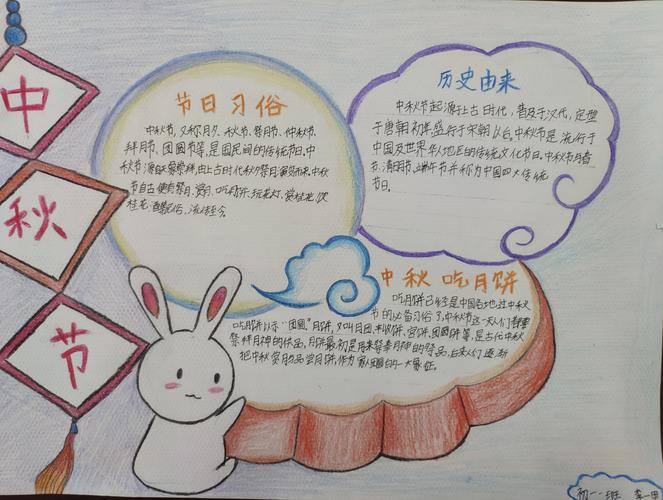 中
秋
节
节日习俗
中秋节,又称月夕、秋节、仲秋节、
拜月节、团圆节等,是国民间的传统节日。中
秋节源自天象崇拜,由上古时代秋夕祭月演变而来。中秋
节自古便有祭月、赏月、吃月饼、玩花灯、赏桂花、饮
桂花酒等民俗,流传至今。
历史由来
中秋节起源于上古时代,普及于汉代,定型
于唐朝初年,盛行于宋朝以后。中秋节是流行于
中国及世界华人地区的传统文化节日。中秋节与春
节、清明节、端午节并称为中国四大传统
节日。
中秋吃月饼
吃月饼已经是中国各地过中秋
节的必备习俗了,中秋节这一天人们都要
吃月饼以示“团圆”月饼,又叫月团、丰收饼、宫饼、团圆饼等,是古代中秋
祭拜月神的供品。月饼最初是用来祭奉月神的祭品,后来人们逐渐
把中秋赏月与品尝月饼,作为家人团圆的一大象征。
初一 班